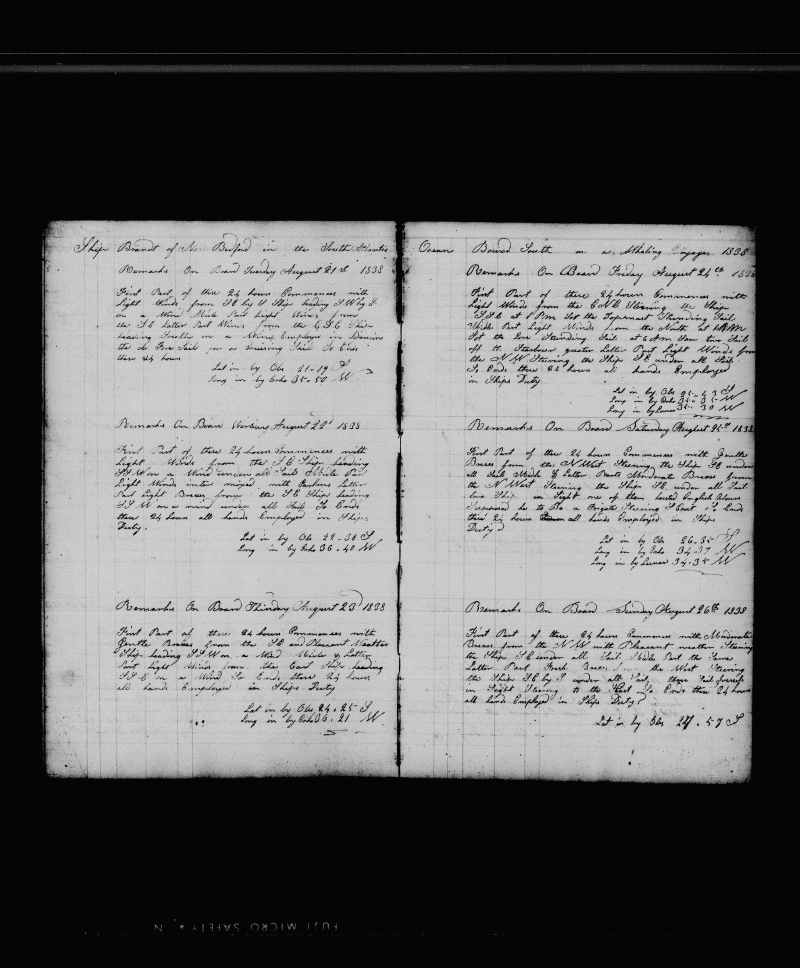 Ship Brandt of New Bedford in the South Atlantic
Remarks On Board Tuesday August 21st 1838
First Part of these 24 hours Commences with
Light Winds from SE by S Ship heading SW by S
on a Wind Midle Part Light Winds from
the SE Latter Part Winds from the ESE Ship
heading South on a Wind Employed in
the
these 24 hours
Lat in by Obs 21-19 S
Long in by Cro 35-50 W
Remarks On Board August 22d 1838
First Part of these 24 hours Commences with
Light Winds from the SE Ship heading
SSW on a Wind under all Sail Midle Part
Light Winds inter mixed with Latter
Part Light Breeses from the SE Ship heading
SSW on a wind under all Sail So Ends
these 24 hours all hands Employed in Ships
Duty.
Lat in by Obs 22-38 S
Long in by Cro 36-40 W
Remarks On Board Thirsday August 23 1838
First Part of these 24 hours Commences with
Gentle Breeses from the SE and Pleasant Weather
Ship heading SSW on a Wind Midle & Latter
Part Light Winds from the East Ship heading
SSE on a Wind So Ends these 24 hours
all hands Employed in Ships Duty
Lat in by Obs 24-25 S
Long in by Cro 36-21 W
Ocean Bound South on a Whaling Voyage 1838
Remarks On Board Friday August 24th 1838
First Part of these 24 hours Commences with
Light Winds from the ENE Steering the Ship
SSE at 1 PM Set the Topmast Studding Sail
Midle Part Light Winds from the North at AM
Set the Studding Sail at 6 AM Saw two Sail
off the quarter Latter Part Light Winds from
the NW Steering the Ship SE under all Sail
So Ends these 24 hours all hands Employed
in Ships Duty
Lat in by Obs 25-43 S
Long in by Cro 34-35 W
Long in by Lunar 35-30 W
Remarks On Board Saturday August 25th 1838
First Part of these 24 hours Commences with Gentle
Breses from the N West Steering the Ship SE under
all Sail Midle & Latter Parts Moderate Breses from
the N West Steering the Ship SE under all Sail
two Ships in Sight one of them English
Supposed to Be a Brigate Steering S East So Ends
these 24 hours all hands Employed in Ships
Duty
Lat in by Obs 26-35 S
Long in by Cro 34-37 W
Long in by Lunar 34-35 W
Remarks On Board Sunday August 26th 1838
First Part of these 24 hours Commences with Moderate
Breses from the NW with Pleasant weather Steering
the Ship SE under all Sail Midle Part the Same
Latter Part Fresh Breses from the West Steering
the Ships SE by S under all Sail, three Sail
in Sight Steering to the East So Ends these 24 hours
all hands Employed in Ships Duty
Lat in by Obs 27-57 S
FUJI MICRO SAFETY N